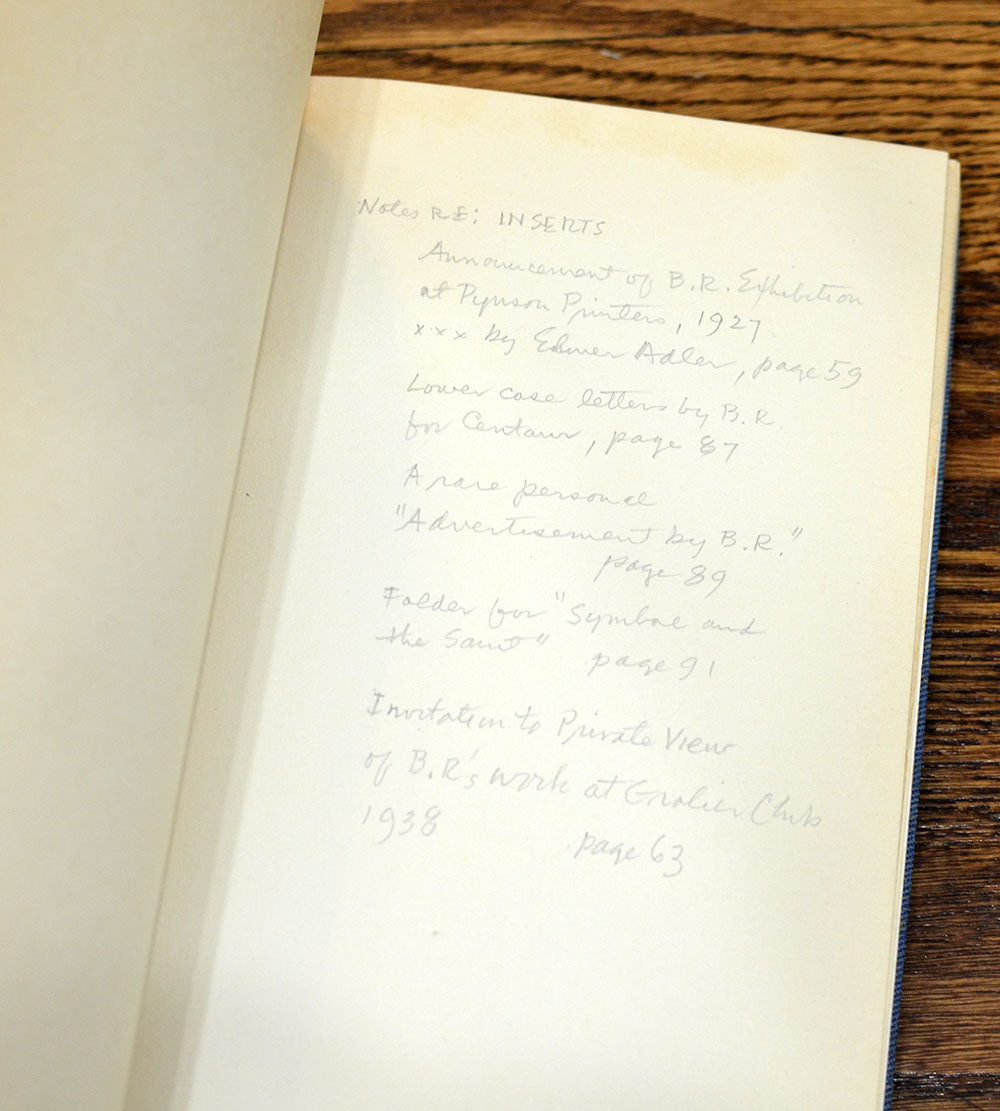 Notes RE: INSERTS
Announcement of B.R. Exhibition
at Pynson Printers, 1927
x x x by Elmer Adler, page 59
Lower case letters by B.R.
for Centaur, page 87
A rare personal
"Advertisement by B.R."
page 89
Folder for "Symbol and
the Saint" page 91
Invitation to Private View
of B.R's work at Grolier Club
1938 page 63